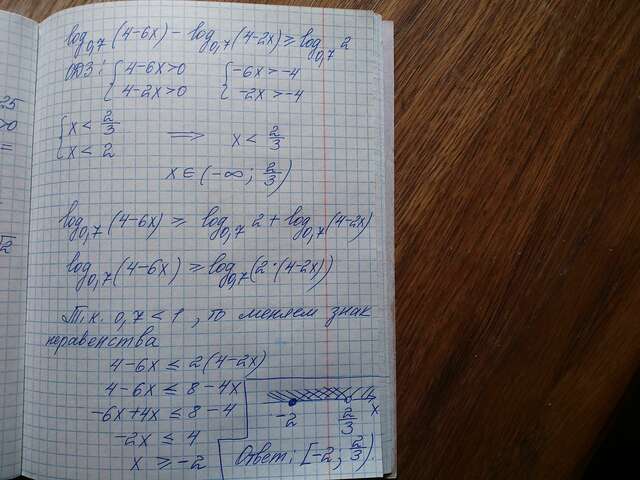 log₀,₇(4-6x) - log₀,₇(4-2x) ≥ log₀,₇ 2
ОДЗ: { 4-6x>0 { -6x>-4
{ 4-2x>0 { -2x>-4
{ x < 2/3 ⟹ x < 2/3
{ x < 2
x ∈ (-∞; 2/3)
log₀,₇(4-6x) ≥ log₀,₇ 2 + log₀,₇(4-2x)
log₀,₇(4-6x) ≥ log₀,₇(2·(4-2x))
Т.к. 0,7 < 1, то меняем знак
неравенства
4-6x ≤ 2(4-2x)
4-6x ≤ 8-4x
-6x+4x ≤ 8-4
-2x ≤ 4
x ≥ -2
-2 2/3 x
Ответ: [-2; 2/3).
25
>0
=
√2